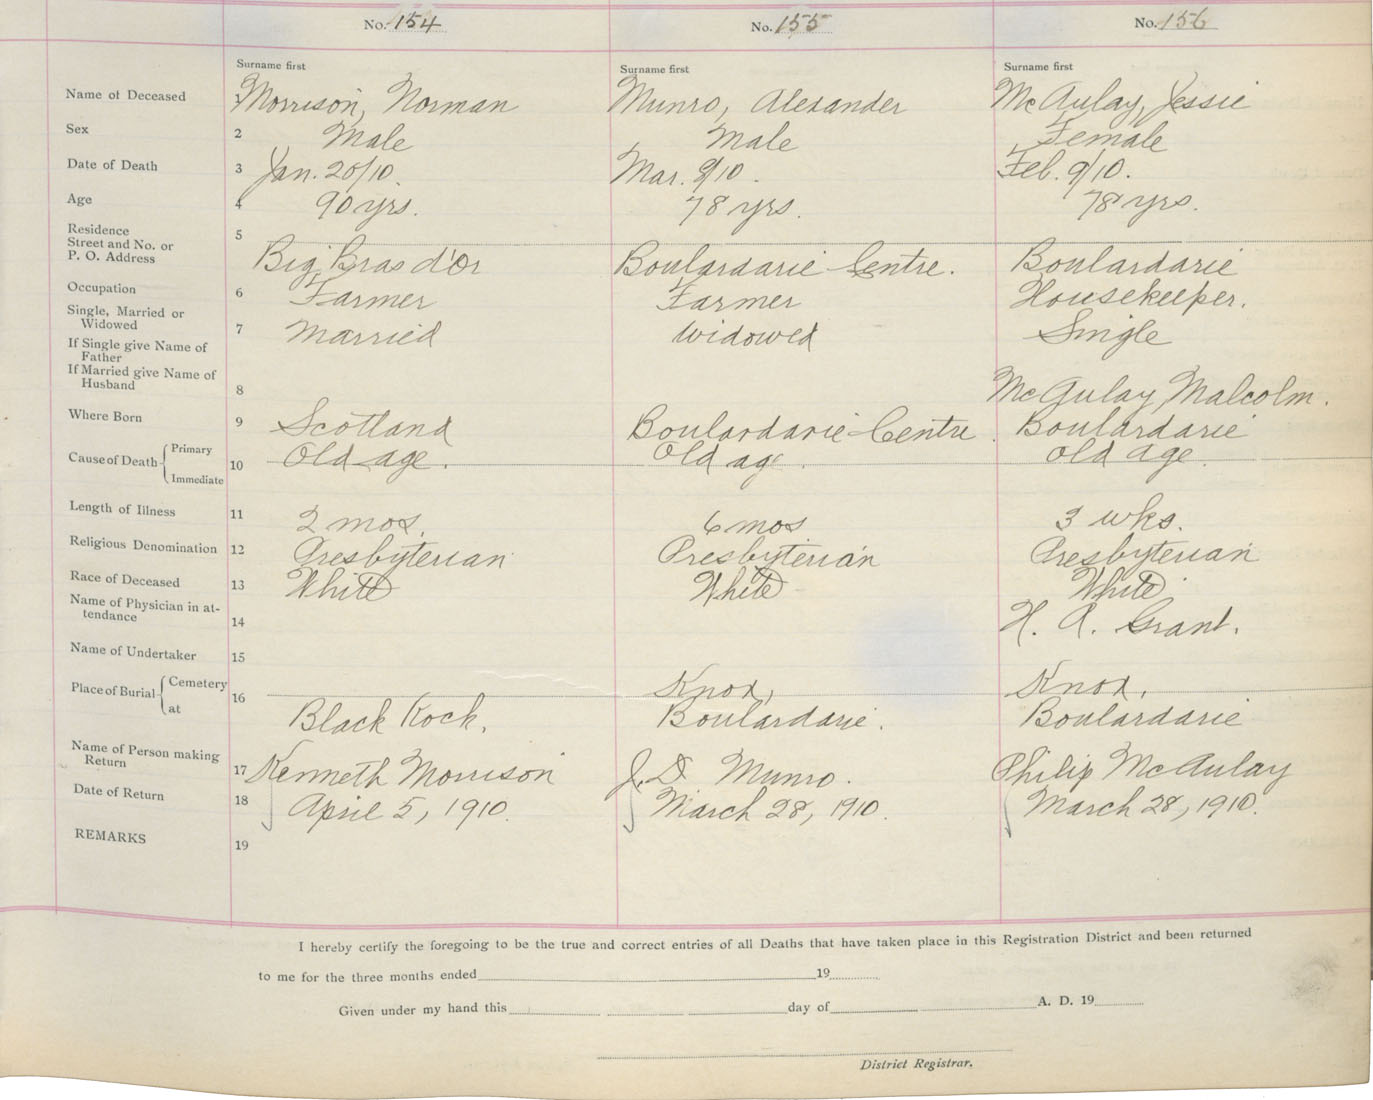 No. 154 No. 155 No. 156
Surname first Surname first Surname first
Name of Deceased 1 Morrison, Norman Munro, Alexander McAulay, Jessie
Sex 2 Male Male Female
Date of Death 3 Jan. 20/10. Mar. 9/10. Feb. 9/10.
Age 4 90 yrs. 78 yrs. 78 yrs.
Residence
Street and No. or 5
P. O. Address Big Bras d'Or Boulardarie Centre. Boulardarie
Occupation 6 Farmer Farmer Housekeeper.
Single, Married or
Widowed 7 Married Widowed Single
If Single give Name of
Father
If Married give Name of
Husband 8 McAulay, Malcolm.
Where Born 9 Scotland Boulardarie Centre. Boulardarie
Cause of Death Primary Old age. Old age. Old age.
10
Immediate
Length of Illness 11 2 mos. 6 mos 3 wks.
Religious Denomination 12 Presbyterian Presbyterian Presbyterian
Race of Deceased 13 White White White
Name of Physician in at-
tendance 14 H. A. Grant.
Name of Undertaker 15
Place of Burial Cemetery 16 Knox, Knox,
at Black Rock. Boulardarie. Boulardarie
Name of Person making
Return 17 Kenneth Morrison J. D. Munro. Philip McAulay
Date of Return 18 April 5, 1910. March 28, 1910. March 28, 1910.
REMARKS 19
I hereby certify the foregoing to be the true and correct entries of all Deaths that have taken place in this Registration District and been returned
to me for the three months ended 19
Given under my hand this day of A. D. 19
District Registrar.